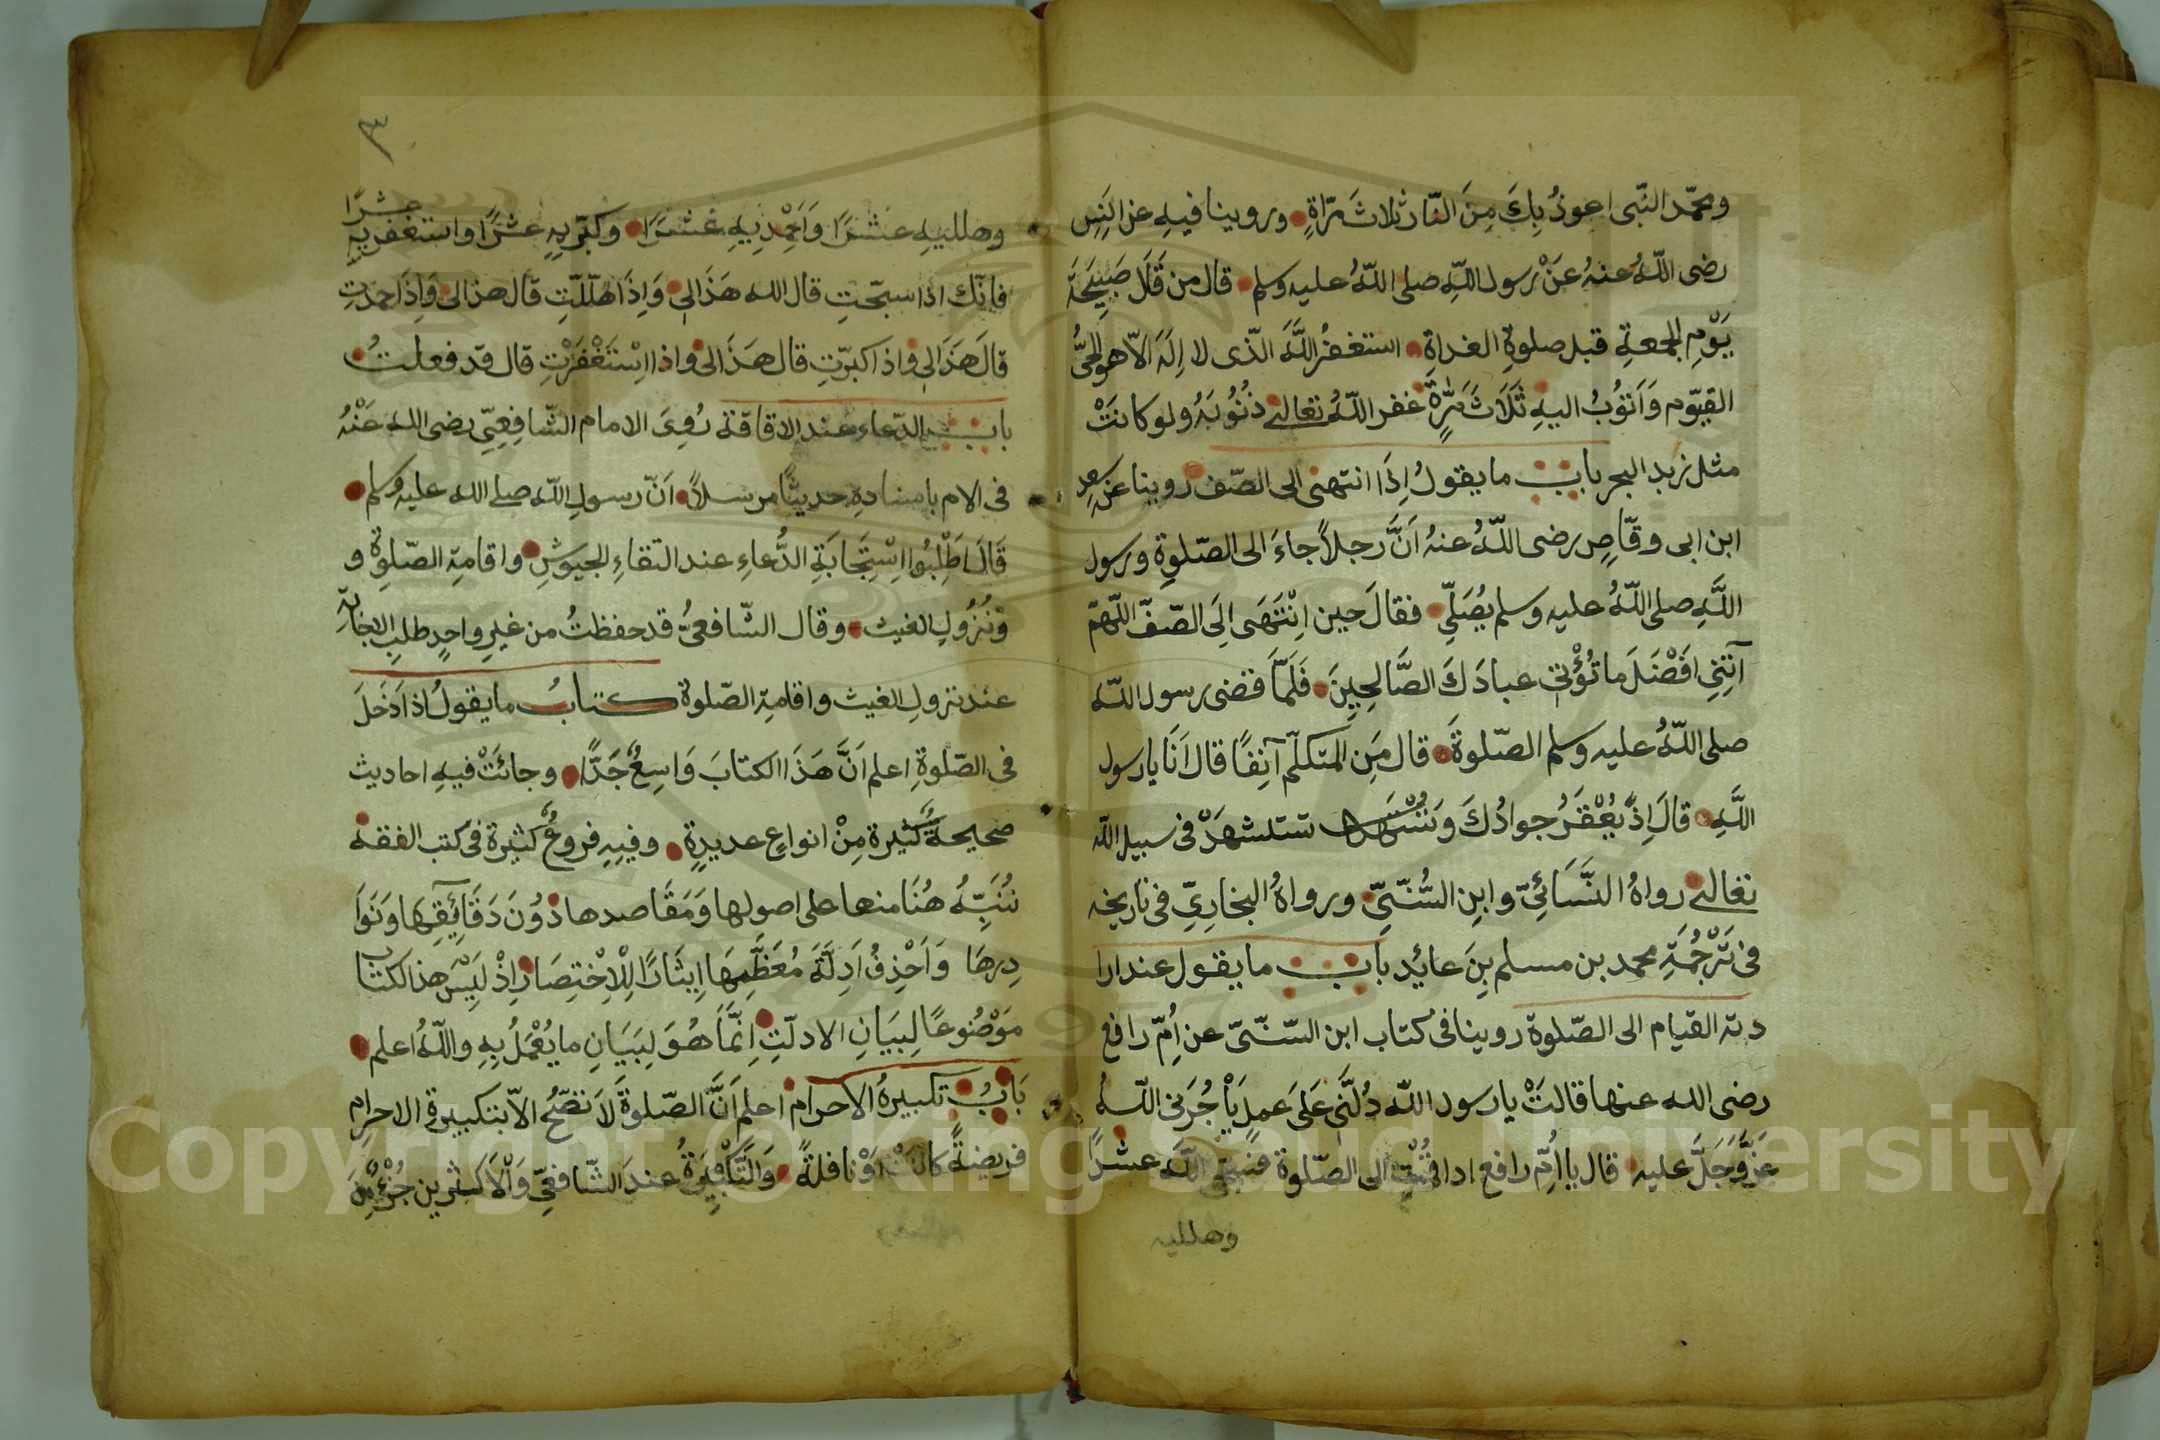 ومحمّد النّبى اعوذُ بِكَ مِنَ النّار ثلاث مَرّاةٍ وروينا فيهِ عن انَسِ
رضى اللّهُ عنهُ عَنْ رسول اللّهِ صلى اللّهُ عليه وسلم قال من قَالَ صَبِيحَةَ
يَوْمِ الجمعةِ قبل صلوةِ الغداةِ استغفرُ اللَّهَ الذّى لا اِلَهَ الاّ هو الحىُّ
القيّوم وَاَتوُبُ اليهِ ثَلَاثَ مَرّةٍ غفر اللّهُ تعالى ذنُوُبَهُ ولو كانتْ
مثل زبد البحر باب ما يقولُ اِذَا انتهى الى الصّف روينا عن سعد
ابن ابى وقّاصٍ رضى اللّهُ عنهُ اَنَّ رجلاً جاءَ الى الصّلوةِ ورسول
اللَّهِ صلى اللّهُ عليه وسلم يُصَلِّى فقالَ حين اِنْتَهَى اِلَى الصّفّ اللّهمّ
آتِنِى افَضْلَ ما تُؤْتى عبادَكَ الصَّالحِيِنَ فَلَمّاَ قضى رسول اللّه
صلى اللّهُ عليه وسلم الصّلوةَ قال مَنِ المتكلّم آنِفًا قال اَنَا يا رسول
اللَّهِ قالَ اِذً يُعْقَرُ جوادُكَ وَتُسْتَشهد تستشهدَ فى سبيل اللّه
تعالى رواهُ النَّسَائِىّ وابِن السُّنّىِّ ورواهُ البخارِىّ فى تاريخه
فى تَرْجُمَةِ محمد بن مسلم بنِ عائد باب ما يقول عند ارا
دته القيام الى الصّلوة روينا فى كتاب ابن السّنّىّ عن اُمّ رافع
رضى الله عنها قالتْ يا رسول اللّه دُلَّنى عَلَى عملٍ يَأْجُرَنى اللّهُ
عَزَّ وَجَلَّ عليه قال يا اُمّ رافع ادا قُمْتِ الى الصّلوة فسبّحى اللّه عشرًا
وهلليه
٣
وهلليهِ عشرًا وَاَحْمِدِيهِ عشرًا وكبّريهِ عشرًا واستغفريهِ
عشرًا
فانّك اذا سبّحتِ قال الله هَذَا لى وَاِذَا هلّلتِ قال هذا لى وَاِذَا حمدتِ
قالَ هَذَا لى واذا كبرّتِ قال هَذَا لى واذا اسْتَغْفَرْتِ قال قد فعلتُ
باب الدّعاء عند الاقاقة رُوِىَ الامام الشّافِعِىِّ رضى الله عَنْهُ
فى الام باسنادهِ حديثًا مرسلاً اَنّ رسولِ اللّه صلى الله عليه وسلم
قَالَ اَطْلِبُوا اسْتِجَابَةِ الدُّعاءِ عند التقاءِ الجيوُشِ واقامةِ الصّلوة و
ونُزُولِ الغيث وقال الشّافعىُّ قد حفظتُ من غيرِ واحدٍ طلبِ الاجابة
عند نزولِ الغيث واقامةِ الصّلوة كتابُ ما يقولُ اذا دَخَلَ
فى الصّلوةِ اعلم اَنَّ هَذَا الكتابَ وَاسِعٌ جَدًّا وجائَتْ فيهِ احاديث
صحيحةٌ كثيرة مِنْ انواعٍ عديدةٍ وفيهِ فروعٌ كثيرة فى كتب الفقه
نُنَبِّهُ هُنَا منها على اصولها وَمَقَاصدها دُونَ دَقَايِقِها وَنَوَا
دِرِهَا وَاَحْذِفُ اَدِلَّةَ مُعَظَّمِهَا اِيثَارًا لِلْاِخْتِصَارِ اِذْ لَيْسَ هذ الكتاب
مَوْضُوعًا لِبَيَانِ الادلّتِ اِنّمَّا هُوَ لِبَيَانِ ما يُعْمَلُ بِهِ واللّهُ اعلم
بَابُ تكبيرةُ الاحرام اعلم اَنَّ الصّلوةَ لاَ تصّحُ الاّ بتكبيرة الاحرامِ
فريضةً كانتْ اوْ نافلةً وَالتَّكْبِيرَةُ عندَ الشّافعىّ وَالْاَكثرين جُزْءٌ مِنَ
Copyright © King Saud University